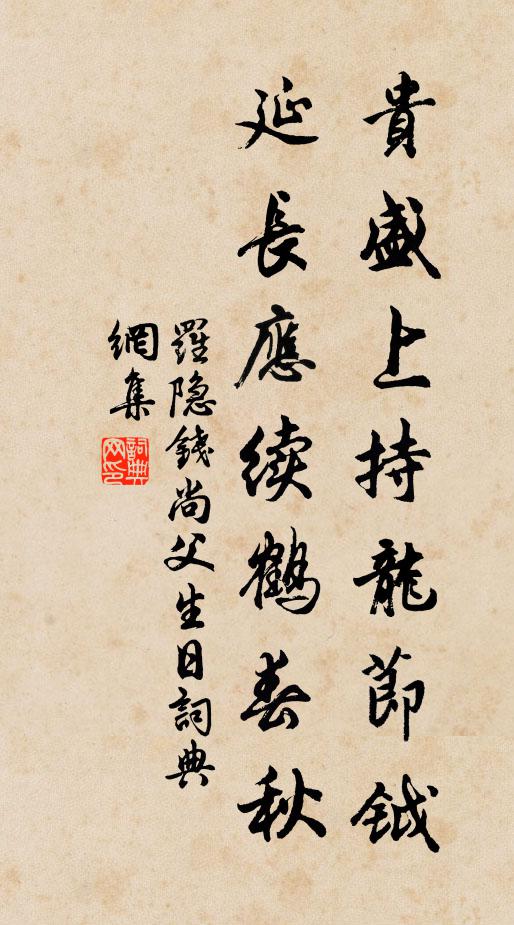 貴盛上持龍節鉞
延長應续鶴春秋
羅隐錢尚父生日詞典
網集
詞典
网印